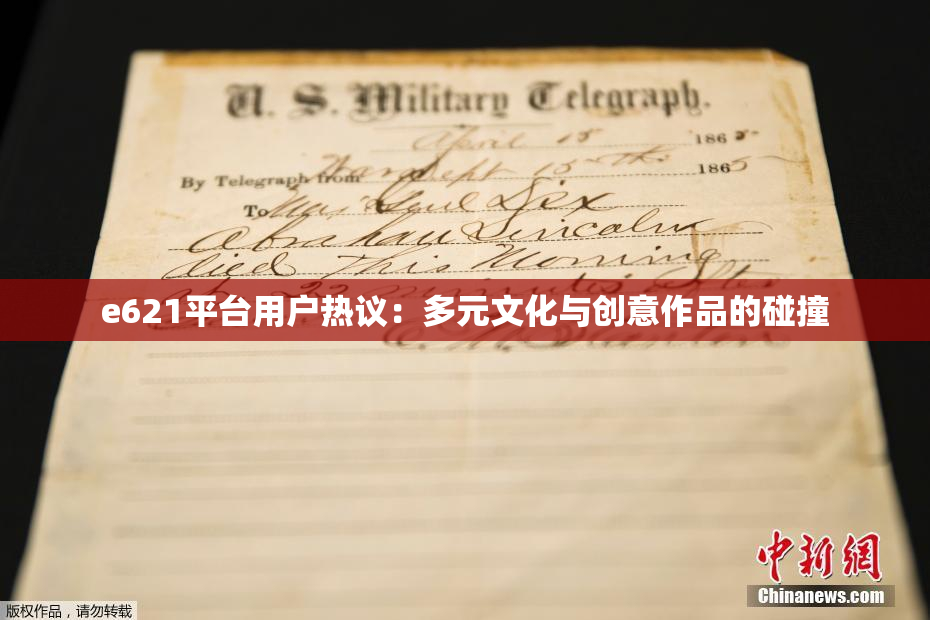 U. S. Military Telegraph.
April 15 1865
By Telegraph from War Dept 15th 1865
To Maj Genl Dix
Abraham Lincoln
died This Morning
at 22 minutes after
e621平台用户热议：多元文化与创意作品的碰撞
E. M. Stanton
中新网
Chinanews.com
版权作品，请勿转载